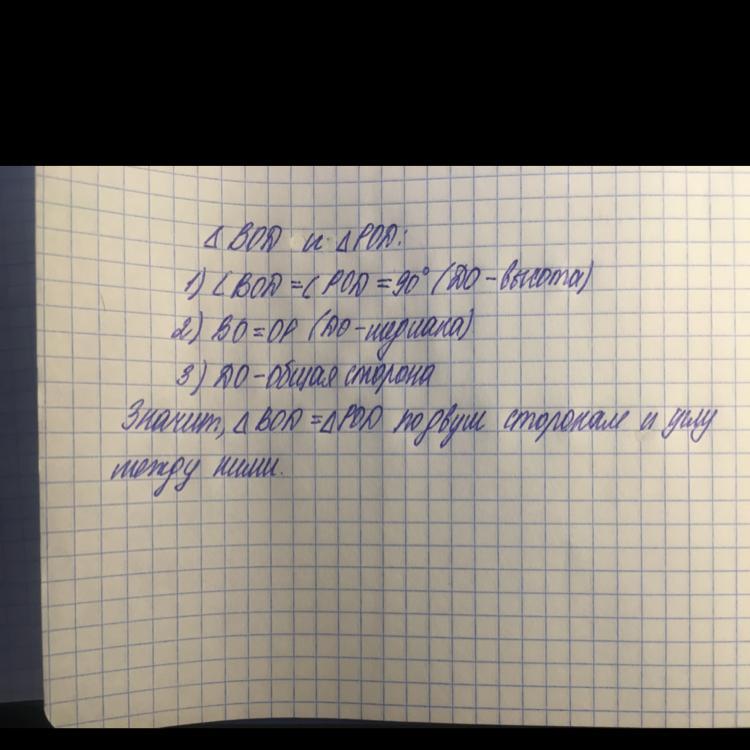 △ BOD и △ POD:
1) ∠ BOD = ∠ POD = 90° (DO - высота)
2) BO = OP (DO - медиана)
3) DO - общая сторона
Значит, △ BOD = △ POD по двум сторонам и углу
между ними.